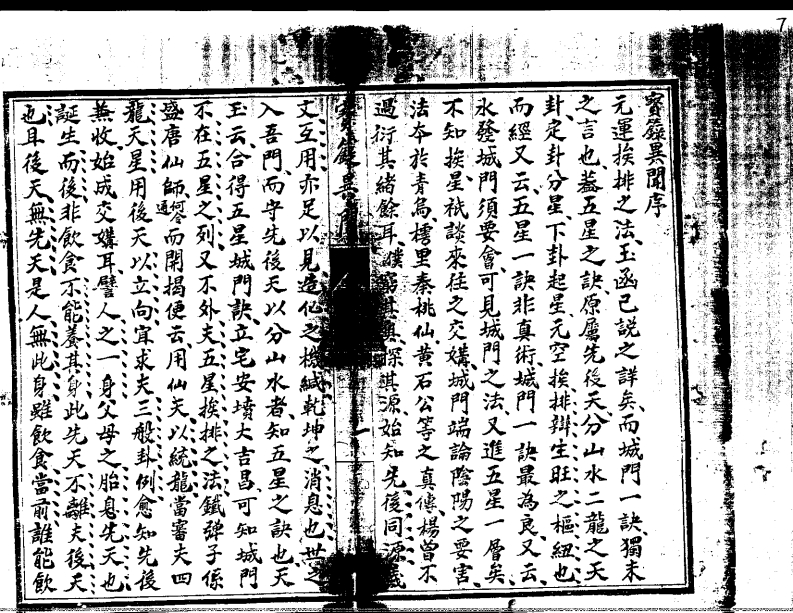 7
寳籙異聞序
元運挨排之法玉函已説之詳矣而城門一訣獨未
之言也葢五星之訣原屬先後天分山水二龍之天
卦定卦分星下卦起星元空挨排辯生旺之樞紐也
而經又云五星一訣非真術城門一訣最為良又云
水發城門須要會可見城門之法又進五星一層矣
不知挨星祇談來往之交媾城門端論陰陽之要害
法夲於青烏樗里秦桃仙黄石公等之真傳楊曾不
過衍其緒餘耳僕窮其奥探其源始知先後同源
籙異
一
文互用亦足以見造化之機緘乾坤之消息也世之
入吾門而守先後天以分山水者知五星之訣也天
玉云合得五星城門訣立宅安墳大吉昌可知城門
不在五星之列又不外夫五星挨排之法鐵彈子係
盛唐仙師何令通而開揭便云用仙天以統龍當審夫四
龍天星用後天以立向宜求夫三般卦例愈知先後
兼收始成交媾耳譬人之一身父母之胎息先天也
誕生而後非飲食不能養其身此先天不離夫後天
也耳後天無先天是人無此身雖飲食當前誰能飲